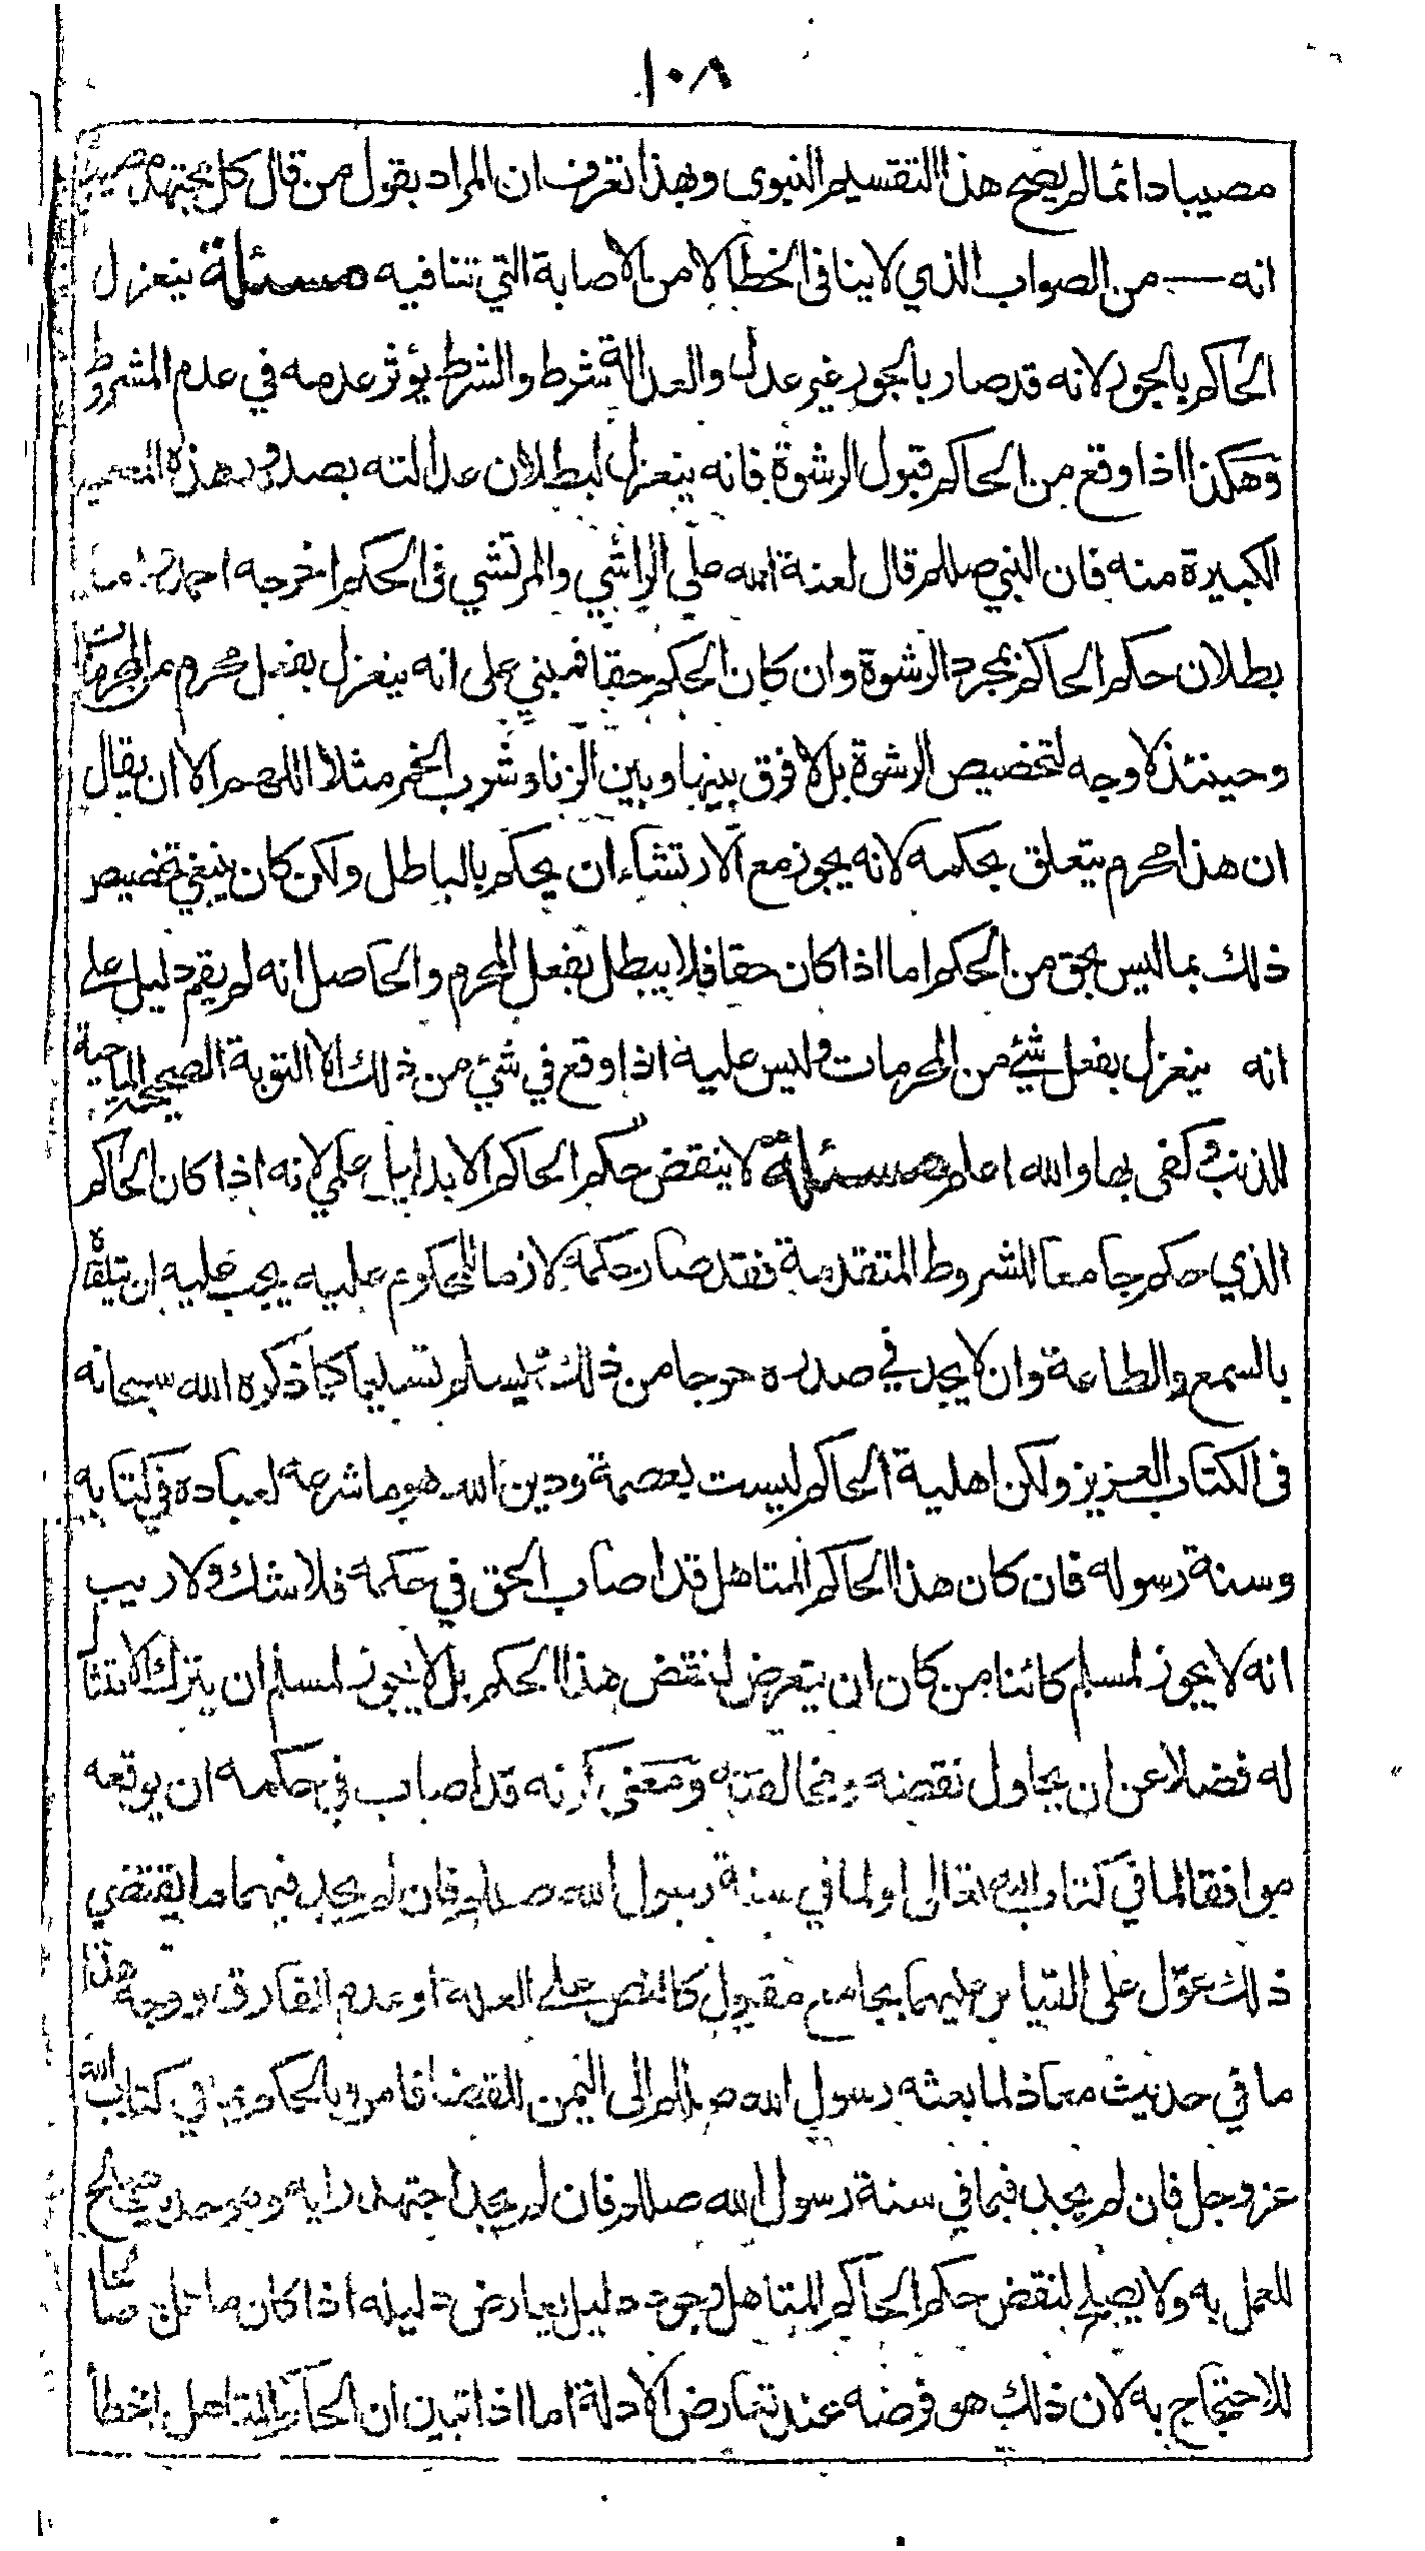 ١٠٨
مصيبا دائما لم يصح هذا التقسيم النبوى وبهذا تعرف ان المراد بقول من قال كل مجتهد مصيب
انه من الصواب الذي لا ينافى الخطا لا من الاصابة التي تنافيه مسئلة ينعزل
الحاكم بالجور لانه قد صار بالجور غير عدل والعدالة شرط والشرط يؤثر عدمه في عدم المشروط
وهكذا اذا وقع من الحاكم قبول الرشوة فانه ينعزل لبطلان عدالته بصدور هذه المعصية
الكبيرة منه فان النبي صللم قال لعنة الله على الراشي والمرتشي فى الحكم اخرجه احمد
بطلان حكم الحاكم بمجرد الرشوة وان كان الحكم حقا فمبني على انه ينعزل بفعل محرم
وحينئذ لا وجه لتخصيص الرشوة بل لا فرق بينها وبين الزنا وشرب الخمر مثلا اللهم الا ان يقال
ان هذا محرم يتعلق بحكمه لانه يجوز مع الارتشاء ان يحكم بالباطل ولكن كان ينبغي تخصيص
ذلك بما ليس بحق من الحكم اما اذا كان حقا فلا يبطل بفعل المحرم والحاصل انه لم يقم دليل على
انه ينعزل بفعل شيئ من المحرمات وليس عليه اذا وقع في شيئ من ذلك الا التوبة الصحيحة الماحية
للذنب وكفى بها والله اعلم مسئلة لا ينقض حكم الحاكم الا بدليل علمي لانه اذا كان الحاكم
الذي حكم جامعا للشروط المتقدمة فقد صار حكمه لازما للمحكوم عليه يجب عليه ان يتلقاه
بالسمع والطاعة وان لا يجد في صدره حرجا من ذلك ويسلم تسليما كما ذكره الله سبحانه
فى الكتاب العزيز ولكن اهلية الحاكم ليست بعصمة ودين الله هو ما شرعه لعباده في كتابه
وسنة رسوله فان كان هذا الحاكم المتاهل قد اصاب الحق في حكمه فلا شك ولا ريب
انه لا يجوز لمسلم كائنا من كان ان يتعرض لنقض هذا الحكم بل لا يجوز لمسلم ان يترك الامتثال
له فضلا عن ان يحاول نقضه ومخالفته ومعنى كونه قد اصاب في حكمه ان يوقعه
موافقا لما في كتاب الله تعالى او لما في سنة رسول الله صللم فان لم يجد فيهما ما يقتضي
ذلك عوّل على القياس عليهما بجامع مقبول كالنص على العلة او عدم الفارق ووجه هذا
ما في حديث معاذ لما بعثه رسول الله صللم الى اليمن للقضا فامره بالحكم بما في كتاب الله
عز وجل فان لم يجد فبما في سنة رسول الله صللم فان لم يجد اجتهد رايه وهو حديث صالح
للعمل به ولا يصلح لنقض حكم الحاكم المتاهل وجود دليل يعارض دليله اذا كان ما صالحا
للاحتجاج به لان ذلك هو فرضه عند تعارض الادلة اما اذا تبين ان الحاكم المتاهل اخطأ